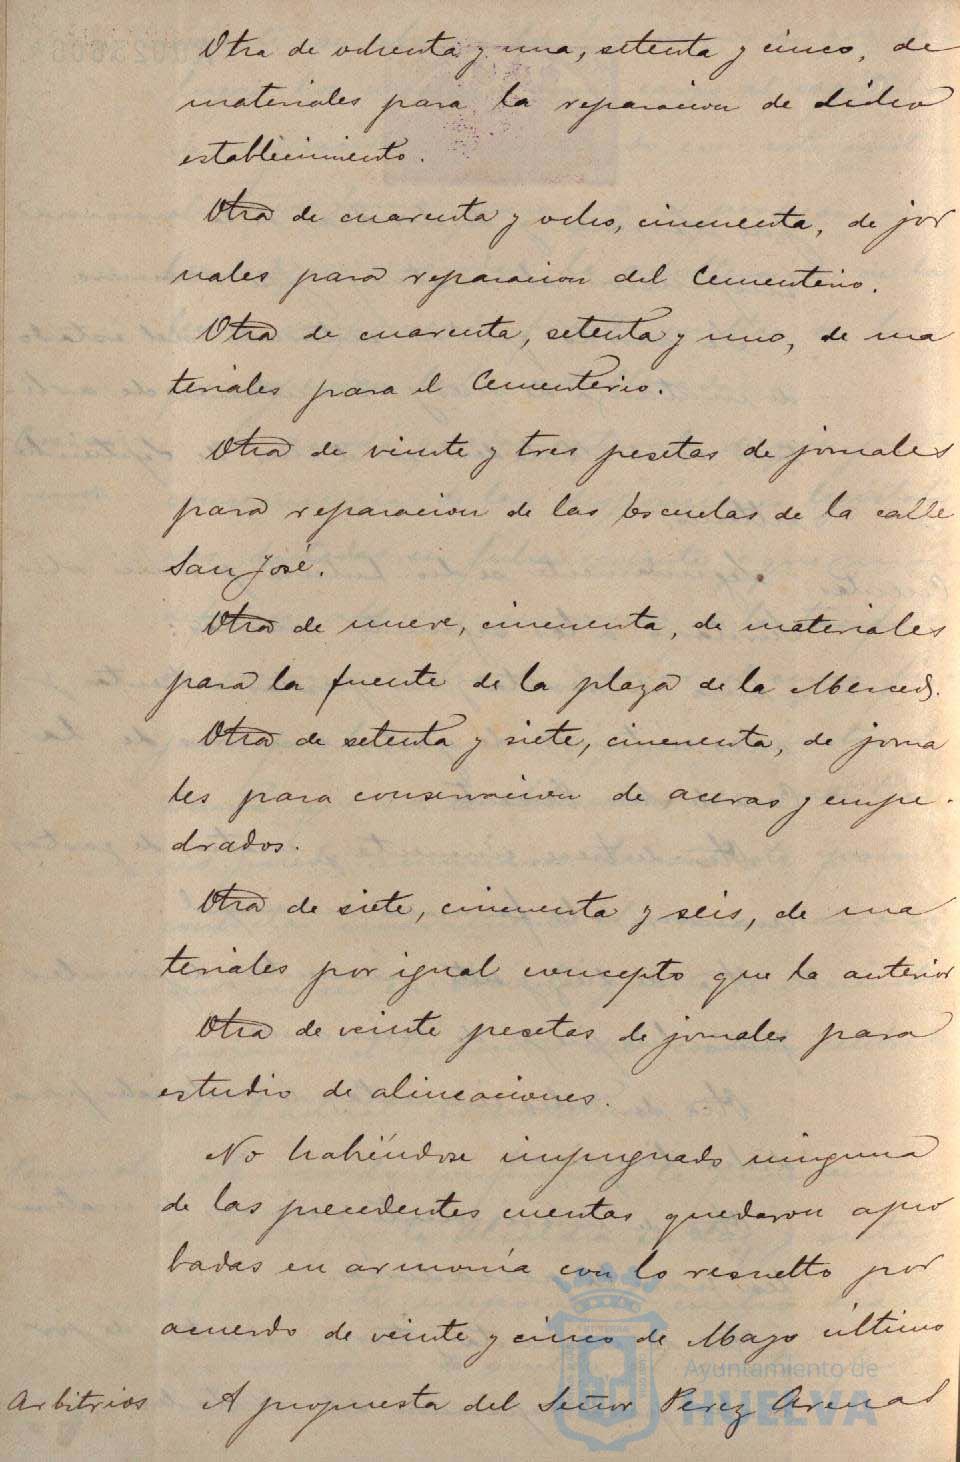 Otra de ochenta y una, setenta y cinco, de
materiales para la reparacion de dicho
establecimiento.
Otra de cuarenta y ocho, cincuenta, de jor
nales para reparacion del Cementerio.
Otra de cuarenta, setenta y uno, de ma
teriales para el Cementerio.
Otra de veinte y tres pesetas de jornales
para reparacion de las Escuelas de la calle
San José.
Otra de nueve, cincuenta, de materiales
para la fuente de la plaza de la Merced.
Otra de setenta y siete, cincuenta, de jorna
les para conservacion de aceras y empe-
drados.
Otra de siete, cincuenta y seis, de ma
teriales por igual concepto que la anterior
Otra de veinte pesetas de jornales para
estudio de alineaciones.
No habiéndose impugnado ninguna
de las precedentes cuentas quedaron apro
badas en armonía con lo resuelto por
acuerdo de veinte y cinco de Mayo último
Arbitrios A propuesta del Señor Perez Arenas
Ayuntamiento de
HUELVA